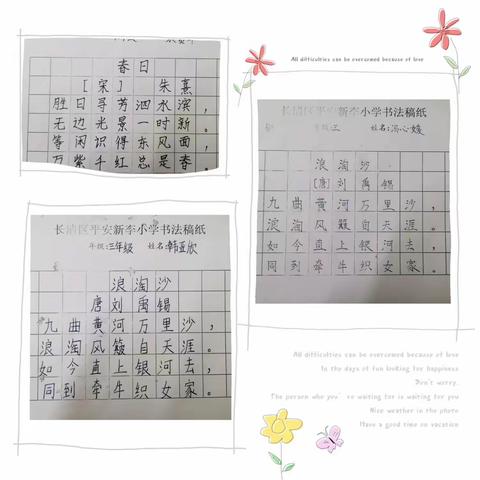 春日
[宋] 朱熹
胜日寻芳泗水滨，
无边光景一时新。
等闲识得东风面，
万紫千红总是春。
All difficulties can be overcomed because of love
长清区平安新李小学书法稿纸
姓名:冯心媛
浪淘沙
[唐]刘禹锡
九曲黄河万里沙，
浪淘风簸自天涯。
如今直上银河去，
同到牵牛织女家。
长清区平安新李小学书法稿纸
年级:三年级 姓名:韩亚欣
浪淘沙
唐刘禹锡
九曲黄河万里沙，
浪淘风簸自天涯。
如今直上银河去，
同到牵牛织女家。
All difficulties can be overcomed because of love
In the days of fun looking for happiness
Don't worry.
The person who you're waiting for is waiting for you
Nice weather in the photo
Have a good time on vacation